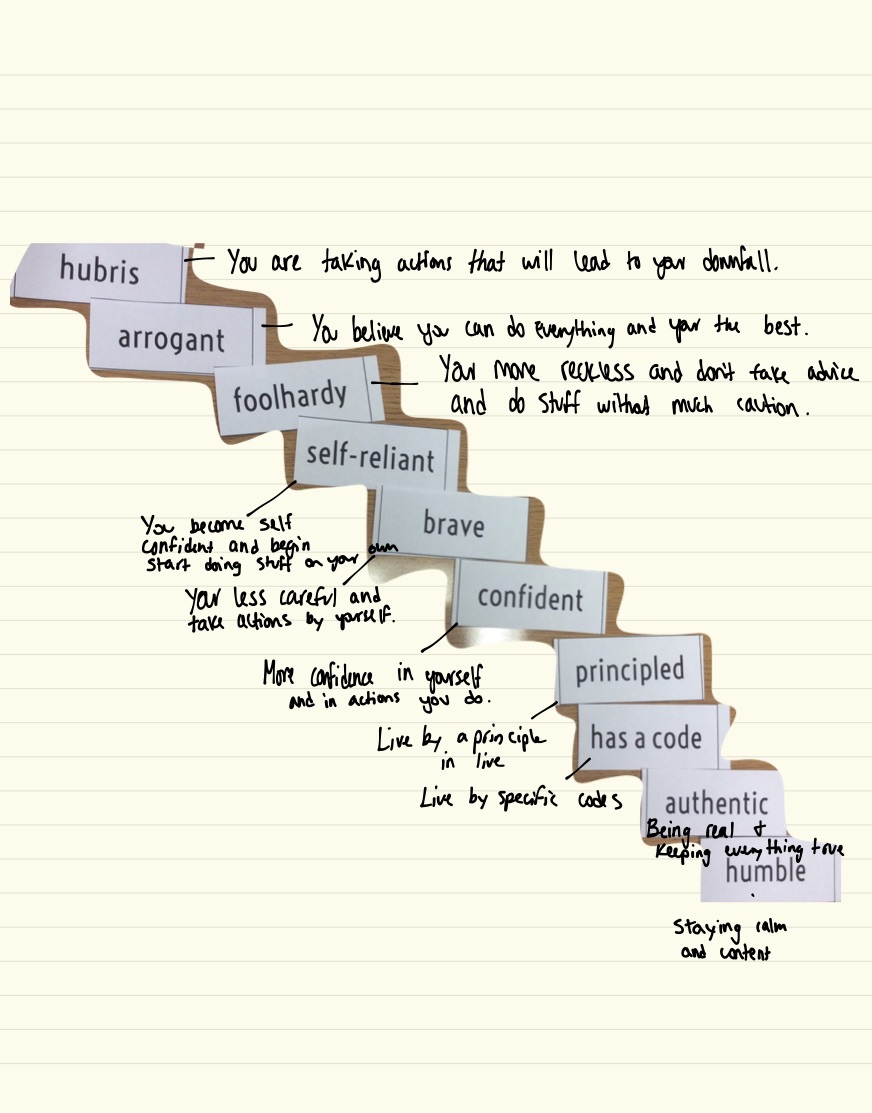 hubris
You are taking actions that will lead to your downfall.
arrogant
You believe you can do everything and your the best.
foolhardy
Your more reckless and don't take advice
and do stuff without much caution.
self-reliant
You become self
confident and begin
start doing stuff on your own
brave
Your less careful and
take actions by yourself.
confident
More confidence in yourself
and in actions you do.
principled
Live by a principle
in live
has a code
Live by specific codes
authentic
Being real &
keeping everything true
humble
Staying calm
and content